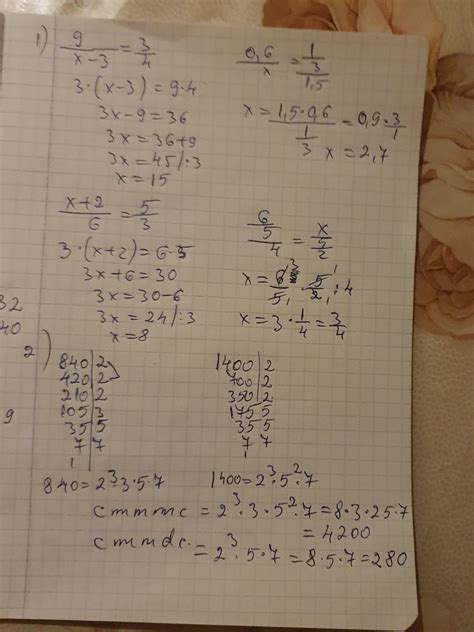 1) 9/(x-3) = 3/4
3·(x-3) = 9·4
3x-9 = 36
3x = 36+9
3x = 45/:3
x = 15
0,6/x = (1/3)/1,5
x = (1,5·0,6)/(1/3) = 0,9·3/1
x = 2,7
(x+2)/6 = 5/3
3·(x+2) = 6·5
3x+6 = 30
3x = 30-6
3x = 24/:3
x = 8
(6/5)/4 = x/(5/2)
x = 6/5 · 5/2 : 4
x = 3·1/4 = 3/4
32
40
9
2)
840|2
420|2
210|2
105|3
35|5
7|7
1
1400|2
700|2
350|2
175|5
35|5
7|7
1
840 = 2³·3·5·7
1400 = 2³·5²·7
cmmmc = 2³·3·5²·7 = 8·3·25·7
= 4200
cmmdc. = 2³·5·7 = 8·5·7 = 280